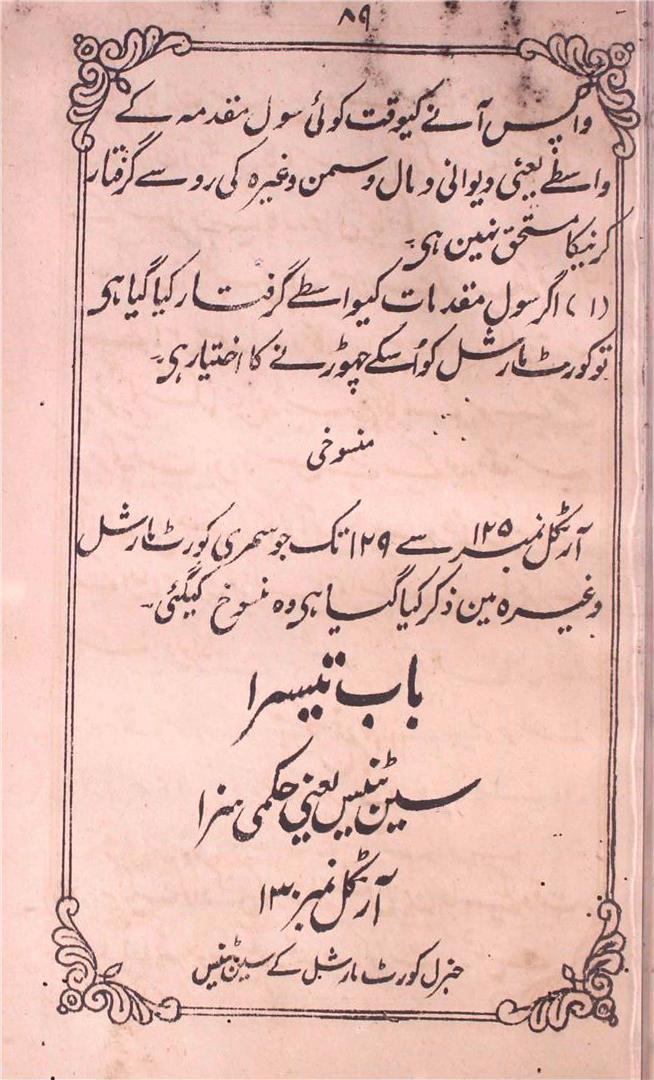 ۸۹
واپس آنے کیوقت کوئی سول مقدمہ کے
واسطے یعنی دیوانی و مال و سمن وغیرہ کی رو سے گرفتار
کرنیکا مستحق نہین ہی۔
(۱) اگر سول مقدمات کیواسطے گرفتار کیا گیا ہی
تو کورٹ مارشل کو اُسکے چھوڑنے کا اختیار ہی۔
منسوخی
آرٹکل نمبر ۱۲۵ سے ۱۲۹ تک جو سمری کورٹ مارشل
وغیرہ مین ذکر کیا گیا ہی وہ منسوخ کیگئی۔
باب تیسرا
سین ٹینس یعنی حکمی سزا
آرٹکل نمبر ۱۳۰
جنرل کورٹ مارشل کے سین ٹینس